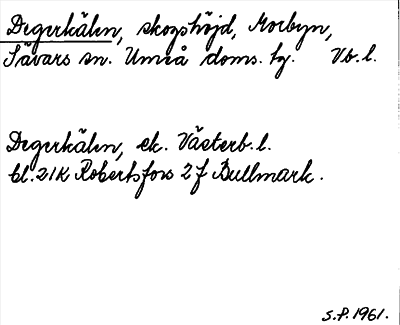 Degerkälen, skogshöjd, Morbyn,
Sävars sn. Umeå doms. tg. Vb. l.
Degerkälen, ek. Västerb. l.
bl. 21K Robertsfors 2f Bullmark.
S.P. 1961.